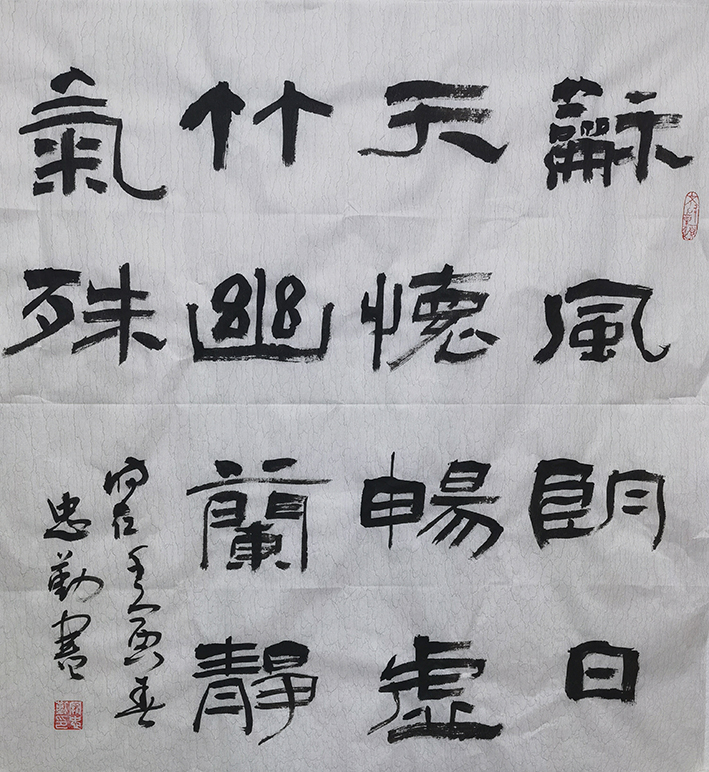 龢風朗日
天懷暢虛
竹幽蘭靜
氣殊
時在壬寅春
忠勤書